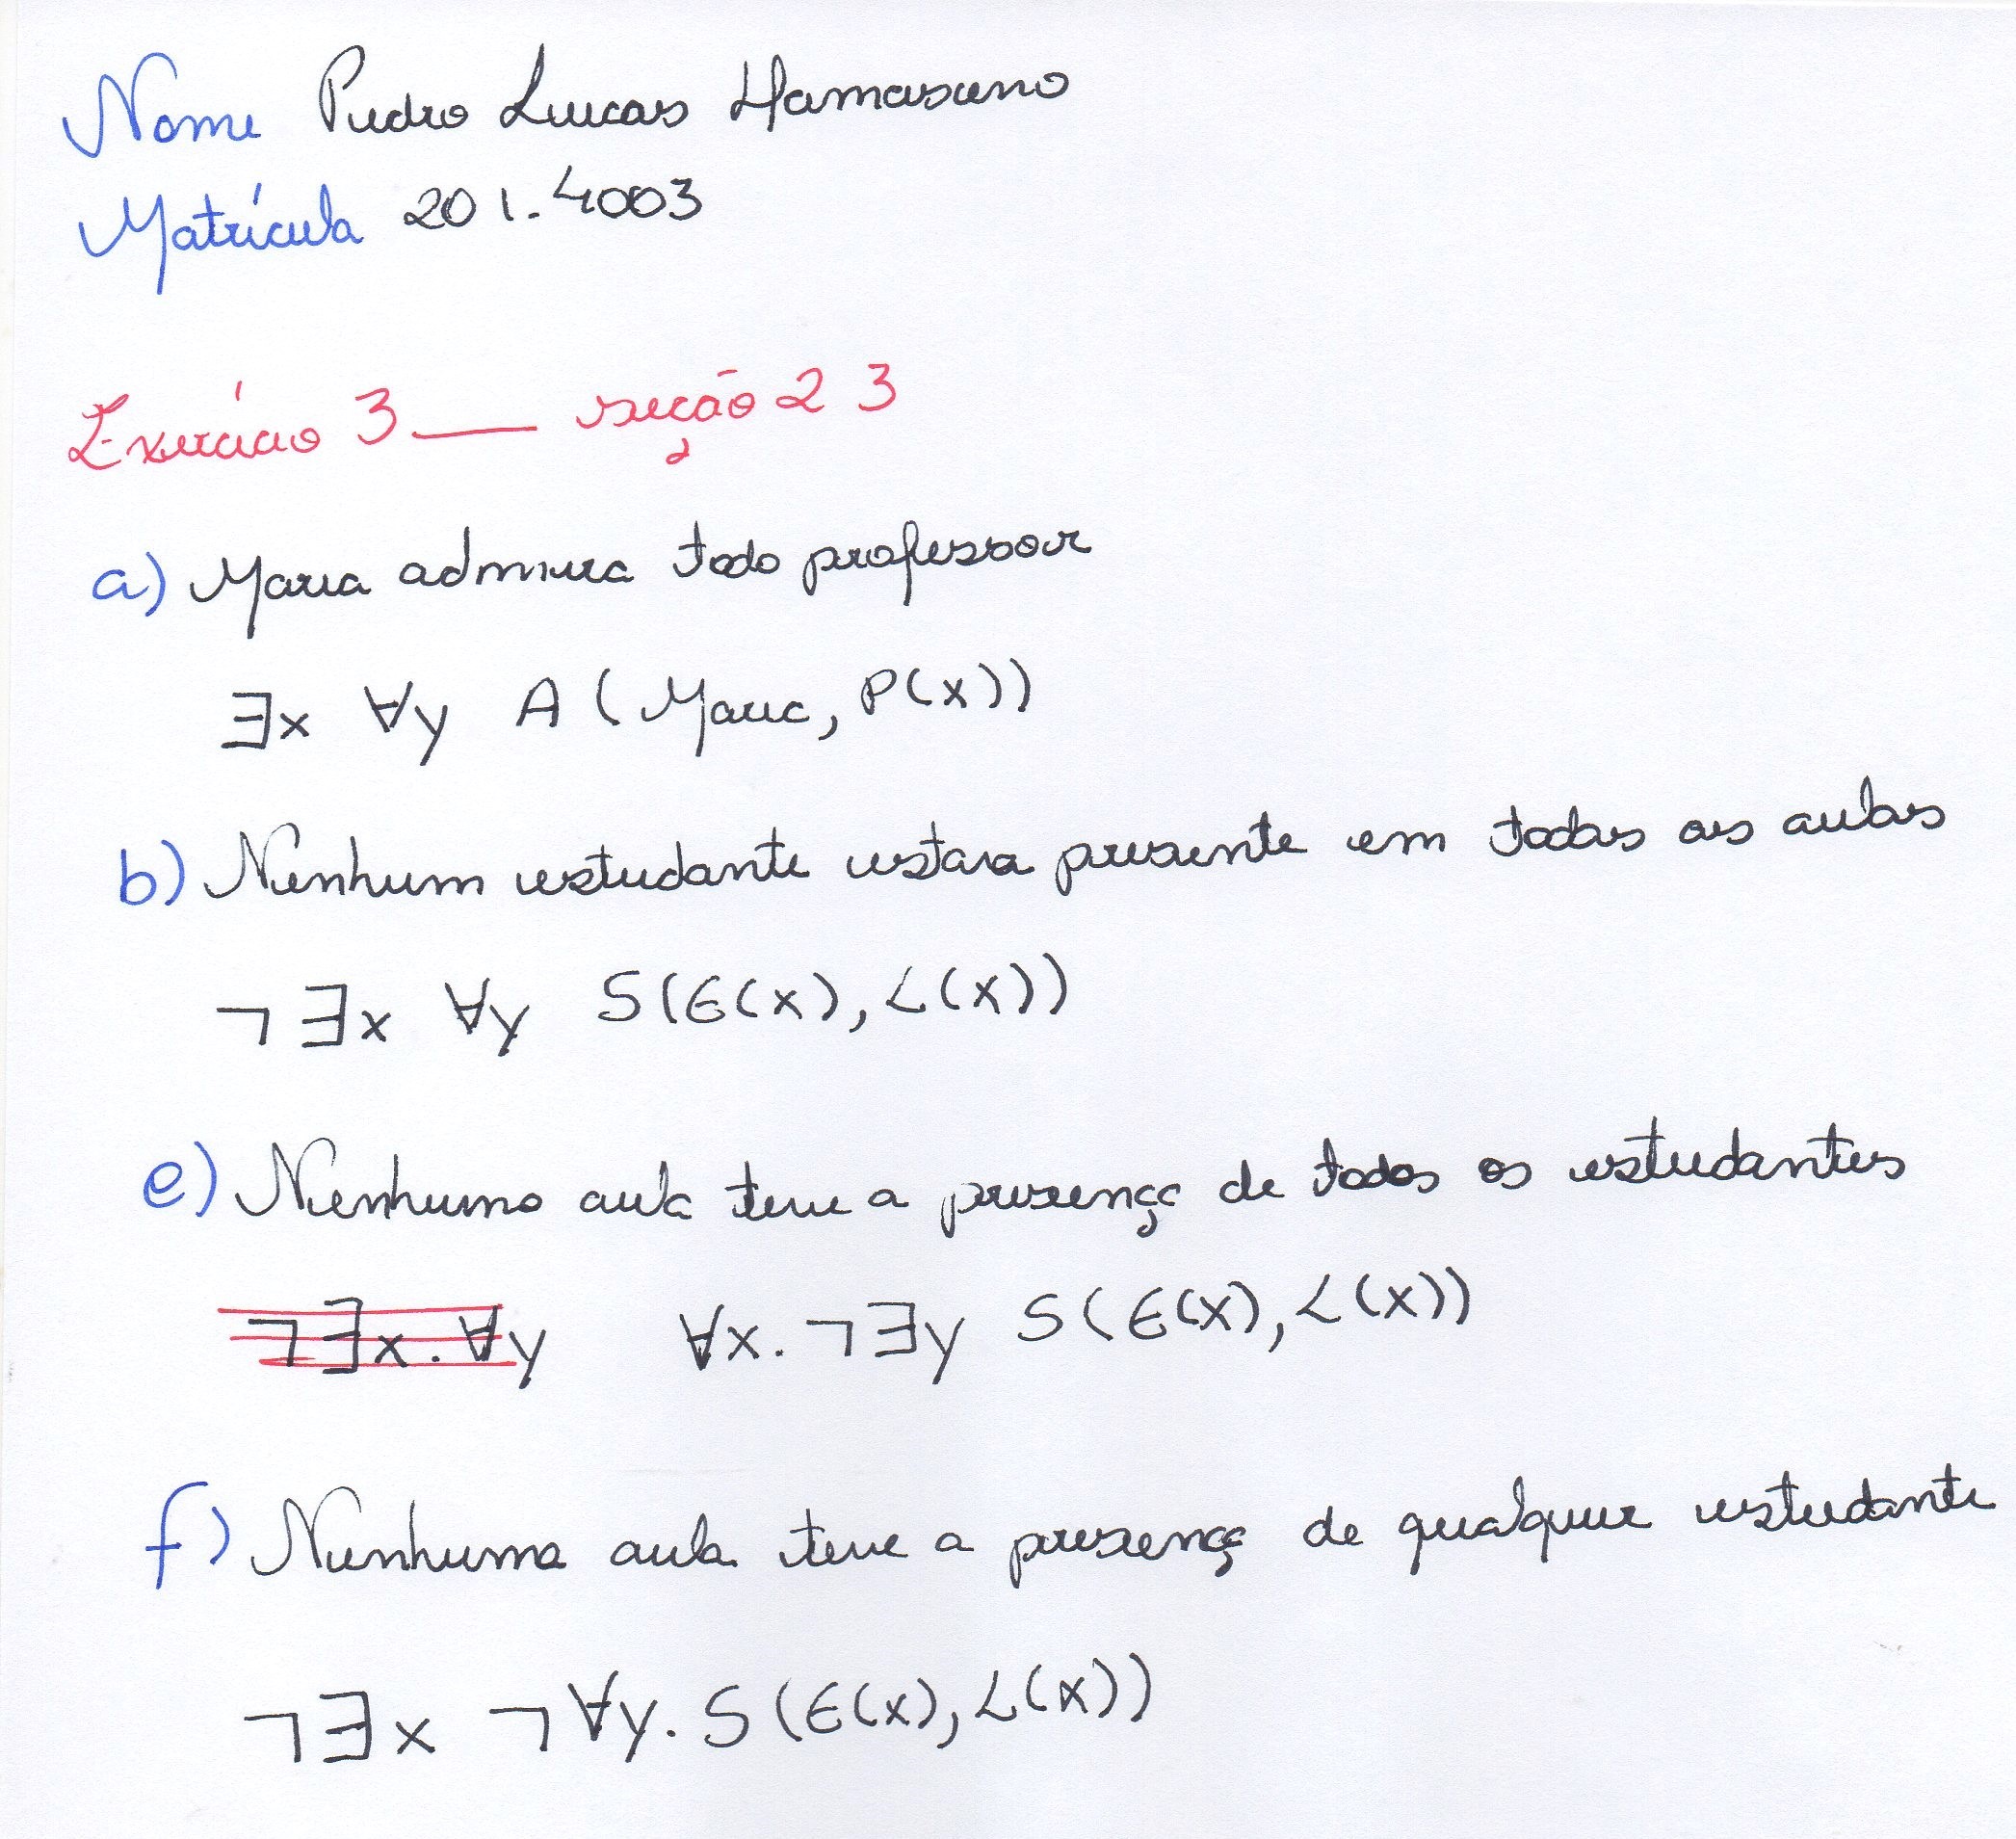 Nome Pedro Lucas Hamasuno
Matrícula 201.4003
Exercício 3 — seção 2 3
a) Maria admira todo professor
∃x ∀y A (Maria, P(x))
b) Nenhum estudante estava presente em todas as aulas
¬∃x ∀y S(E(x), L(x))
e) Nenhuma aula teve a presença de todos os estudantes
¬∃x. ∀y ∀x. ¬∃y S(E(x), L(x))
f) Nenhuma aula teve a presença de qualquer estudante
¬∃x ¬∀y. S(E(x), L(x))